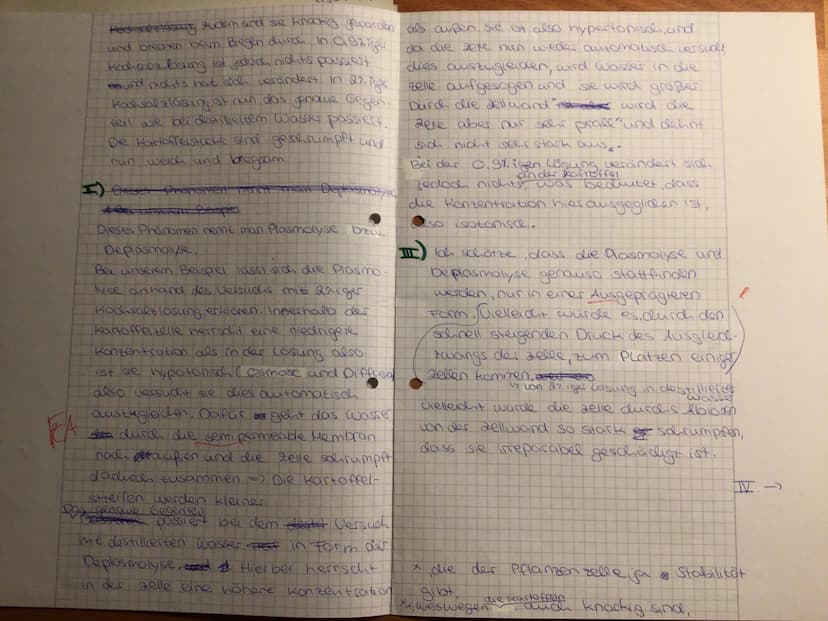 Kochsalzlösung zudem sind sie knackig geworden
und brechen beim Biegen durch. In 0,9%iger
Kochsalzlösung ist jedoch nichts passiert
und nichts hat sich verändert. In 2%iger
Kochsalzlösung ist nun das genaue Gegen-
teil wie bei destilliertem Wasser passiert.
Die Kartoffelstücke sind geschrumpft und
nun weich und biegsam.
II) Dieses Phänomen nennt man Deplasmolyse.
Dieses Phänomen nennt man Plasmolyse bzw.
Deplasmolyse.
Bei unserem Beispiel lässt sich die Plasmo-
lyse anhand des Versuchs mit 2%iger
Kochsalzlösung erklären. Innerhalb der
Kartoffelzelle herrscht eine niedrigere
Konzentration als in der Lösung also
ist sie hypotonisch (Osmose und Diffusion)
also versucht sie dies automatisch
auszugleichen. Dafür geht das Wasser
FA
durch die semipermeable Membran
nach außen und die Zelle schrumpft
dadurch zusammen => Die Kartoffel-
streifen werden kleiner.
Das genaue Gegenteil
passiert bei dem Versuch
mit destillierten Wasser in Form der
Deplasmolyse. Hierbei herrscht
in der Zelle eine höhere Konzentration
als außen. Sie ist also hypertonisch und
da die Zelle nun wieder automatisch versucht
dies auszugleichen, wird Wasser in die
Zelle aufgesogen und sie wird größer.
Durch die Zellwand* wird die
Zelle aber nur sehr prall** und dehnt
sich nicht sehr stark aus.
Bei der 0,9%igen Lösung verändert sich
an der Kartoffel
jedoch nichts, was bedeutet, dass
die Konzentration hier ausgeglichen ist,
also isotonisch.
III) Ich schätze, dass die Plasmolyse und
Deplasmolyse genauso stattfinden
werden, nur in einer Ausgeprägteren
Form. Vielleicht würde es, durch den
schnell steigenden Druck des Ausgleich-
zwangs der Zelle, zum Platzen einiger
Zellen kommen.
von 2%iger Lösung in destilliertes
Wasser
Vielleicht würde die Zelle durchs Ablösen
von der Zellwand so stark schrumpfen,
dass sie irreparabel geschädigt ist.
IV →
* , die der Pflanzenzelle ja Stabilität
gibt,
die Kartoffeln
** , weswegen auch knackig sind,